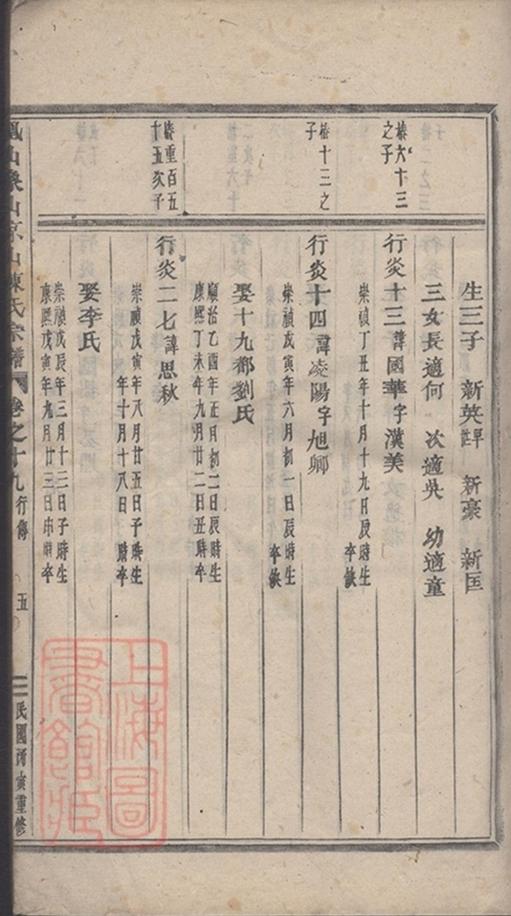 生三子 新英 新豪 新匡
三女長適何 次適吳 幼適童
椽六十三
之子
行炎十三諱國華字漢美
崇禎丁丑年十月十九日辰時生
卒缺
松十三之
子
行炎十四諱凌陽字旭卿
崇禎戊寅年六月初一日辰時生
卒缺
娶十九都劉氏
順治乙酉年正月初二日辰時生
康熙丁未年九月廿二日丑時卒
重百五
十五次子
行炎二七諱思秋
崇禎戊寅年八月廿五日子時生
年十月十八日 時卒
娶李氏
崇禎戊辰年三月十三日子時生
康熙戊寅年九月廿三日申時卒
鳳山象山京山陳氏宗譜 卷之十九 行傳 五 民國丙寅重修
上海圖書館藏